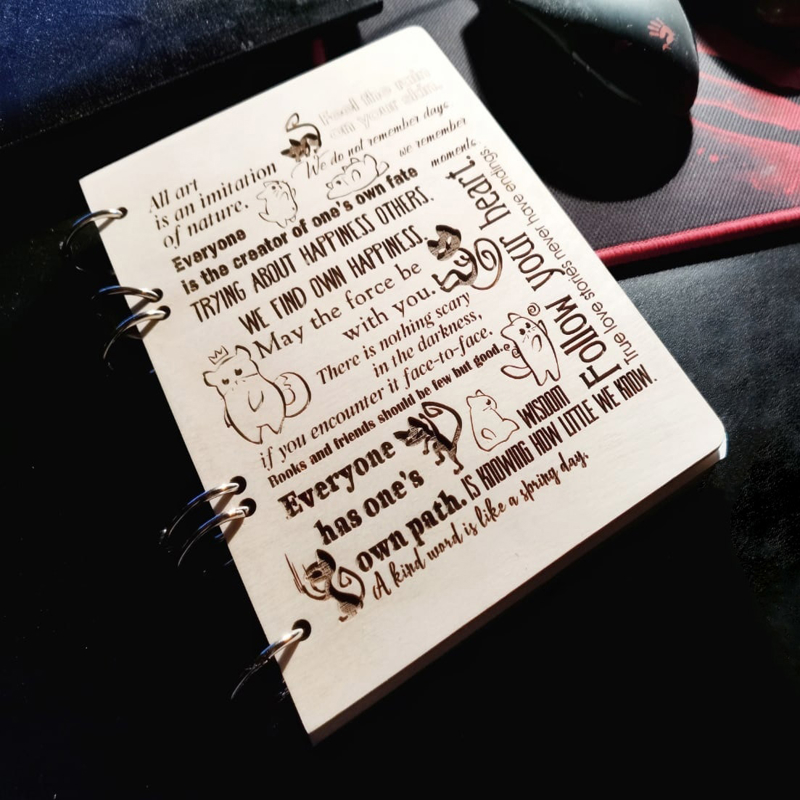 Feel the rain
on your skin.
We do not remember days,
we remember
moments.
All art
is an imitation
of nature.
Everyone
is the creator of one's own fate
TRYING ABOUT HAPPINESS OTHERS.
WE FIND OWN HAPPINESS.
May the force be
with you.
There is nothing scary
in the darkness,
if you encounter it face-to-face.
Books and friends should be few but good.
Everyone
has one's
own path.
WISDOM
IS KNOWING HOW LITTLE WE KNOW.
A kind word is like a spring day.
Follow your heart.
True love stories never have endings.